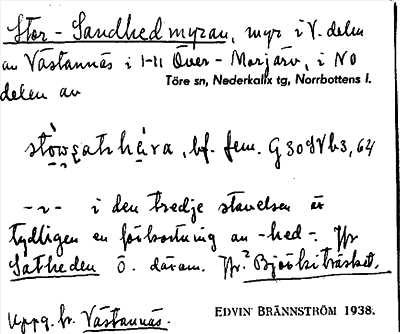 Stor-Sandhedmyran, myr i V. delen
av Västannäs i 1-11 Över-Morjärv, i NO
Töre sn, Nederkalix tg, Norrbottens l.
delen av
bf. fem. G 30 S V b3, 64
-2- i den tredje stavelsen är
tydligen en förkortning av -hed-. Jfr
Satheden Ö. därom. Jfr.² Björkiträsket.
Uppg. fr. Västannäs.
EDVIN BRÄNNSTRÖM 1938.